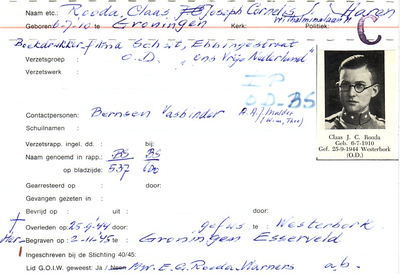 Naam etc.: Rooda, Claas Joseph Cornelis J. Haren
Wilhelminalaan
Geboren 6-7-10 te Groningen Kerk: Politiek:
Boekdrukker firma Schut, Ebbingestraat
Verzetsgroep : O.D. "Ons Vrije Nederland"
Verzetswerk :
O.D. BS
C
Contactpersonen: Bernsen Vasbinder A.A. Mulder
(Wim, Theo)
Schuilnaam :
Verzetsrapp. ingel. dd. : bij:
Naam genoemd in rapp.: BS BS
op bladzijde: 537 600
Claas J. C. Rooda
Geb. 6-7-1910
Gef. 25-9-1944 Westerbork
(O.D.)
Gearresteerd op : door:
Gevangen gezeten in :
Bevrijd op : uit : door:
Overleden op: 25-9-44 door: gefus. te Westerbork
Her- Begraven op : 2-11-45 te: Groningen Esserveld
Ingeschreven bij de Stichting 40/45:
Lid G.O.I.W. geweest: Ja/Neen Mw. E.G. Rooda-Warners a.b.